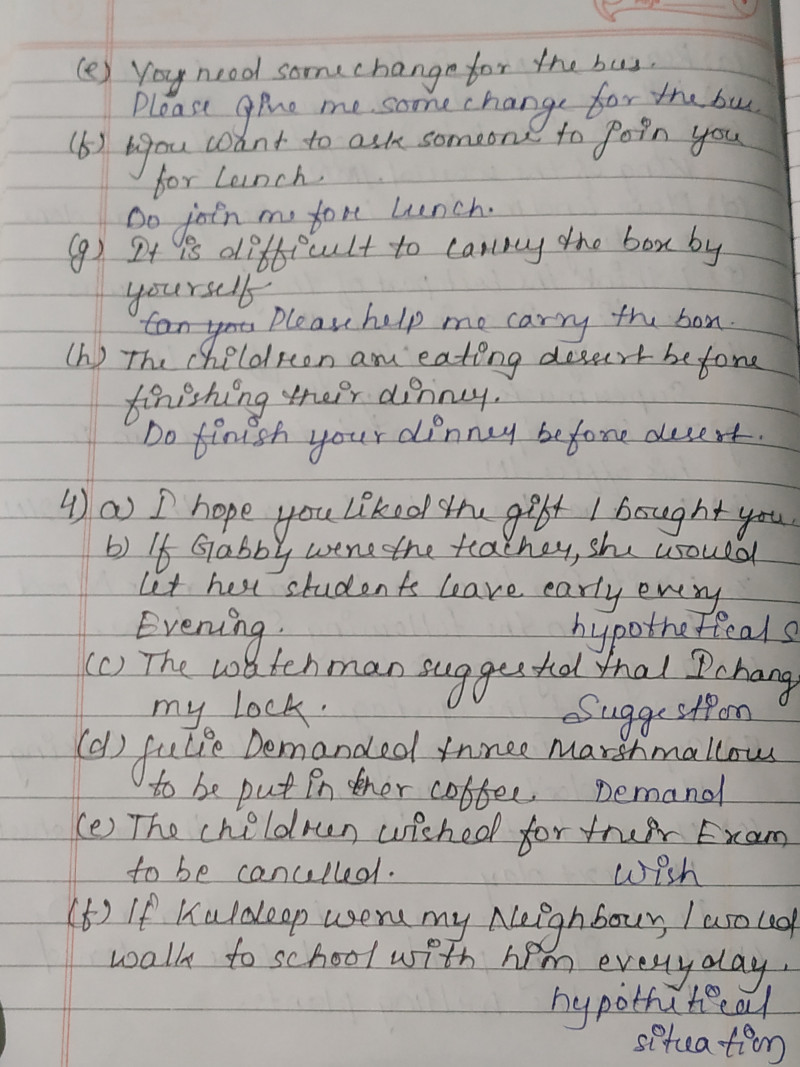 (e) You need some change for the bus.
Please give me some change for the bus.
(f) you want to ask someone to join you
for lunch.
Do join me for lunch.
(g) It is difficult to carry the box by
yourself
can you Please help me carry the box.
(h) The children are eating desert before
finishing their dinner.
Do finish your dinner before desert.
4) a) I hope you liked the gift I bought you.
b) If Gabby were the teacher, she would
let her students leave early every
Evening. hypothetical s
(c) The watchman suggested that I chang
my lock. Suggestion
(d) Julie Demanded three Marshmallows
to be put in her coffee. Demand
(e) The children wished for their Exam
to be cancelled. Wish
(f) If Kuldeep were my Neighbour, I would
walk to school with him everyday.
hypothitical
situation